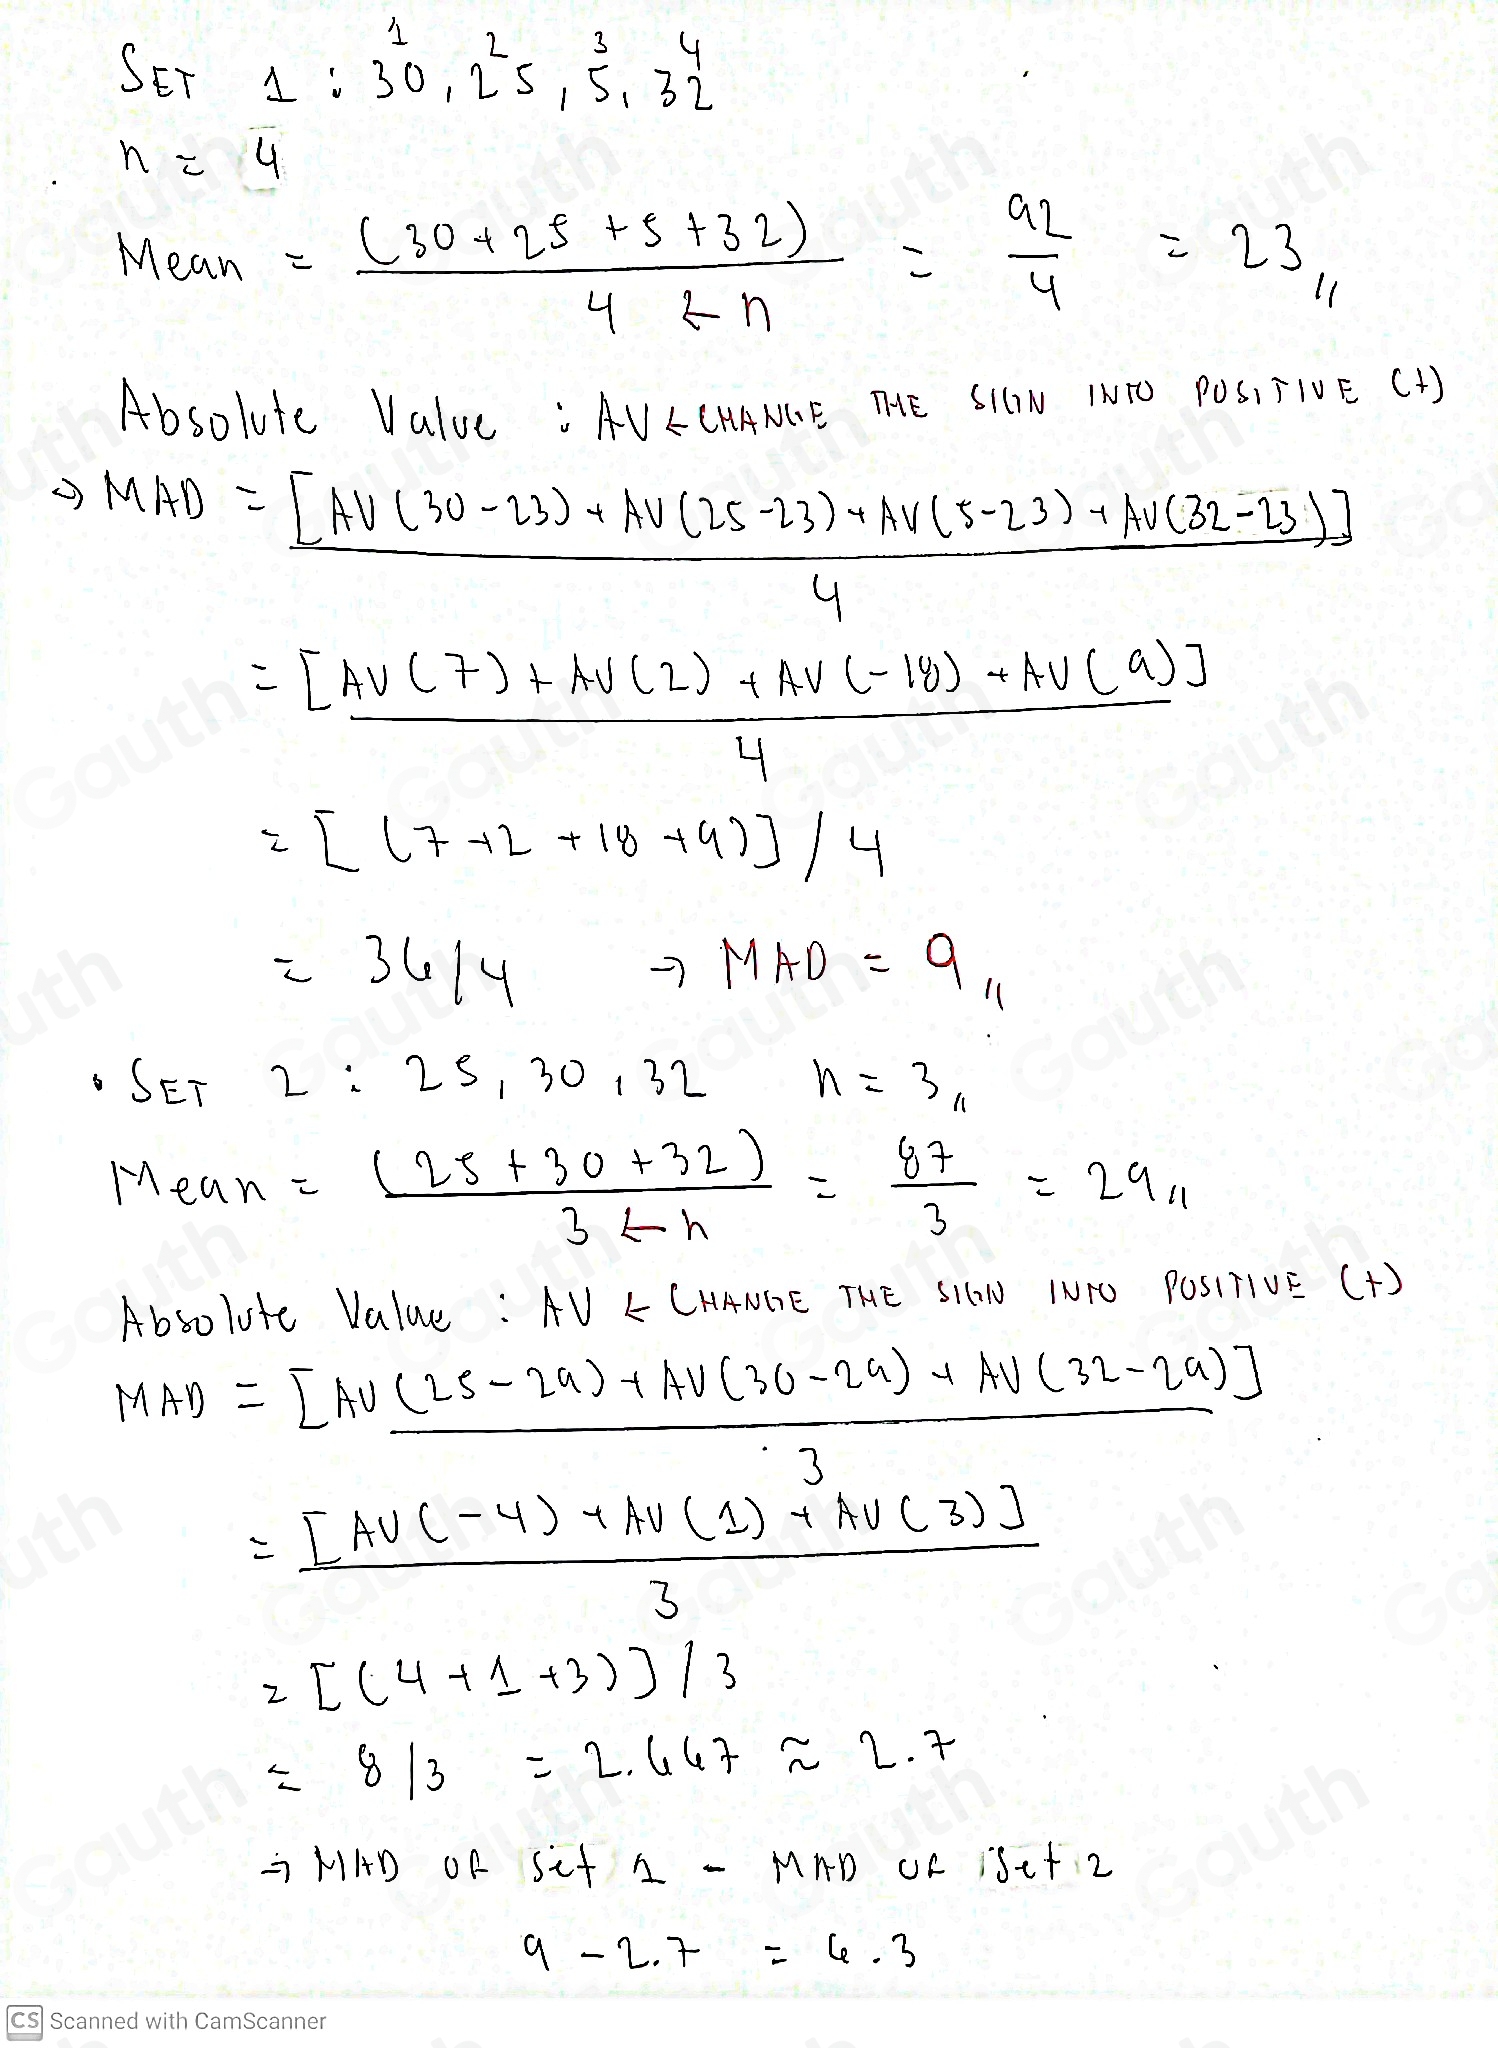 1 2 3 4
SET 1 : 30, 25, 5, 32
n = 4
Mean = (30 + 25 + 5 + 32) / 4 ← n = 92 / 4 = 23 "
Absolute Value : AV ← CHANGE THE SIGN INTO POSITIVE (+)
→ MAD = [AV(30-23) + AV(25-23) + AV(5-23) + AV(32-23)]
4
= [AV(7) + AV(2) + AV(-18) + AV(9)]
4
= [(7+2+18+9)] / 4
= 36/4 → MAD = 9 "
• SET 2 : 25, 30, 32 n = 3 "
Mean = (25 + 30 + 32) / 3 ← n = 87 / 3 = 29 "
Absolute Value : AV ← CHANGE THE SIGN INTO POSITIVE (+)
MAD = [AV(25-29) + AV(30-29) + AV(32-29)]
3
= [AV(-4) + AV(1) + AV(3)]
3
= [(4+1+3)] / 3
= 8/3 = 2.667 ≈ 2.7
→ MAD OF set 1 - MAD OF set 2
9 - 2.7 = 6.3
CS Scanned with CamScanner
Gauth